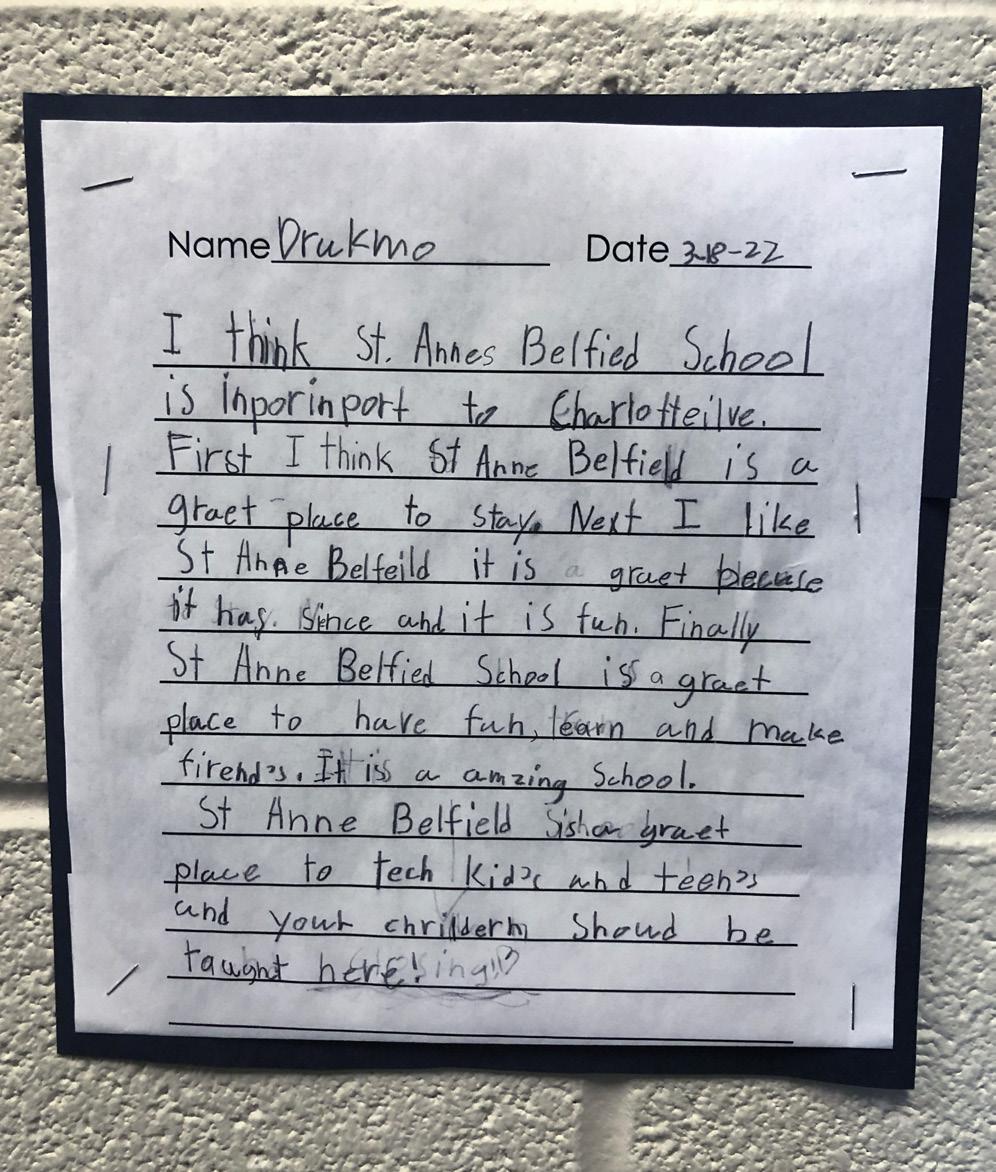 Name Drukmo Date 3-18-22
I think St. Annes Belfied School
is inporinport to Charlotteilve.
First I think St Anne Belfield is a
graet place to stay. Next I like
St Anne Belfeild it is a graet becuse
it has. Since and it is fun. Finally
St Anne Belfied School is a graet
place to have fun, learn and make
firend's. It is a amzing School.
St Anne Belfield graet
place to tech kid's and teen's
and your chrildern shoud be
taught here!